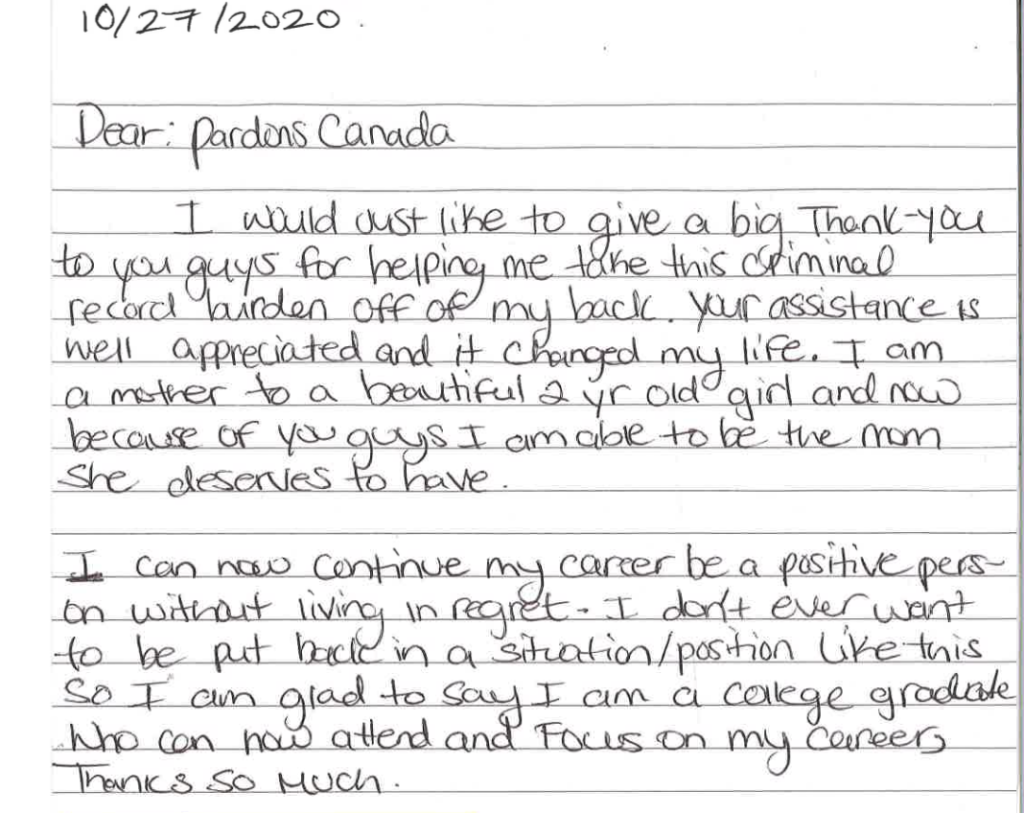 10/27/2020.
Dear: Pardons Canada
I would Just like to give a big Thank-you
to you guys for helping me take this criminal
record burden off of my back. Your assistance is
well appreciated and it changed my life. I am
a mother to a beautiful 2 yr old girl and now
because of you guys I am able to be the mom
She deserves to have.
I can now continue my career be a positive pers-
on without living in regret. I don't ever want
to be put back in a situation/position like this
So I am glad to say I am a college graduate
Who can now attend and Focus on my Career,
Thanks So Much.